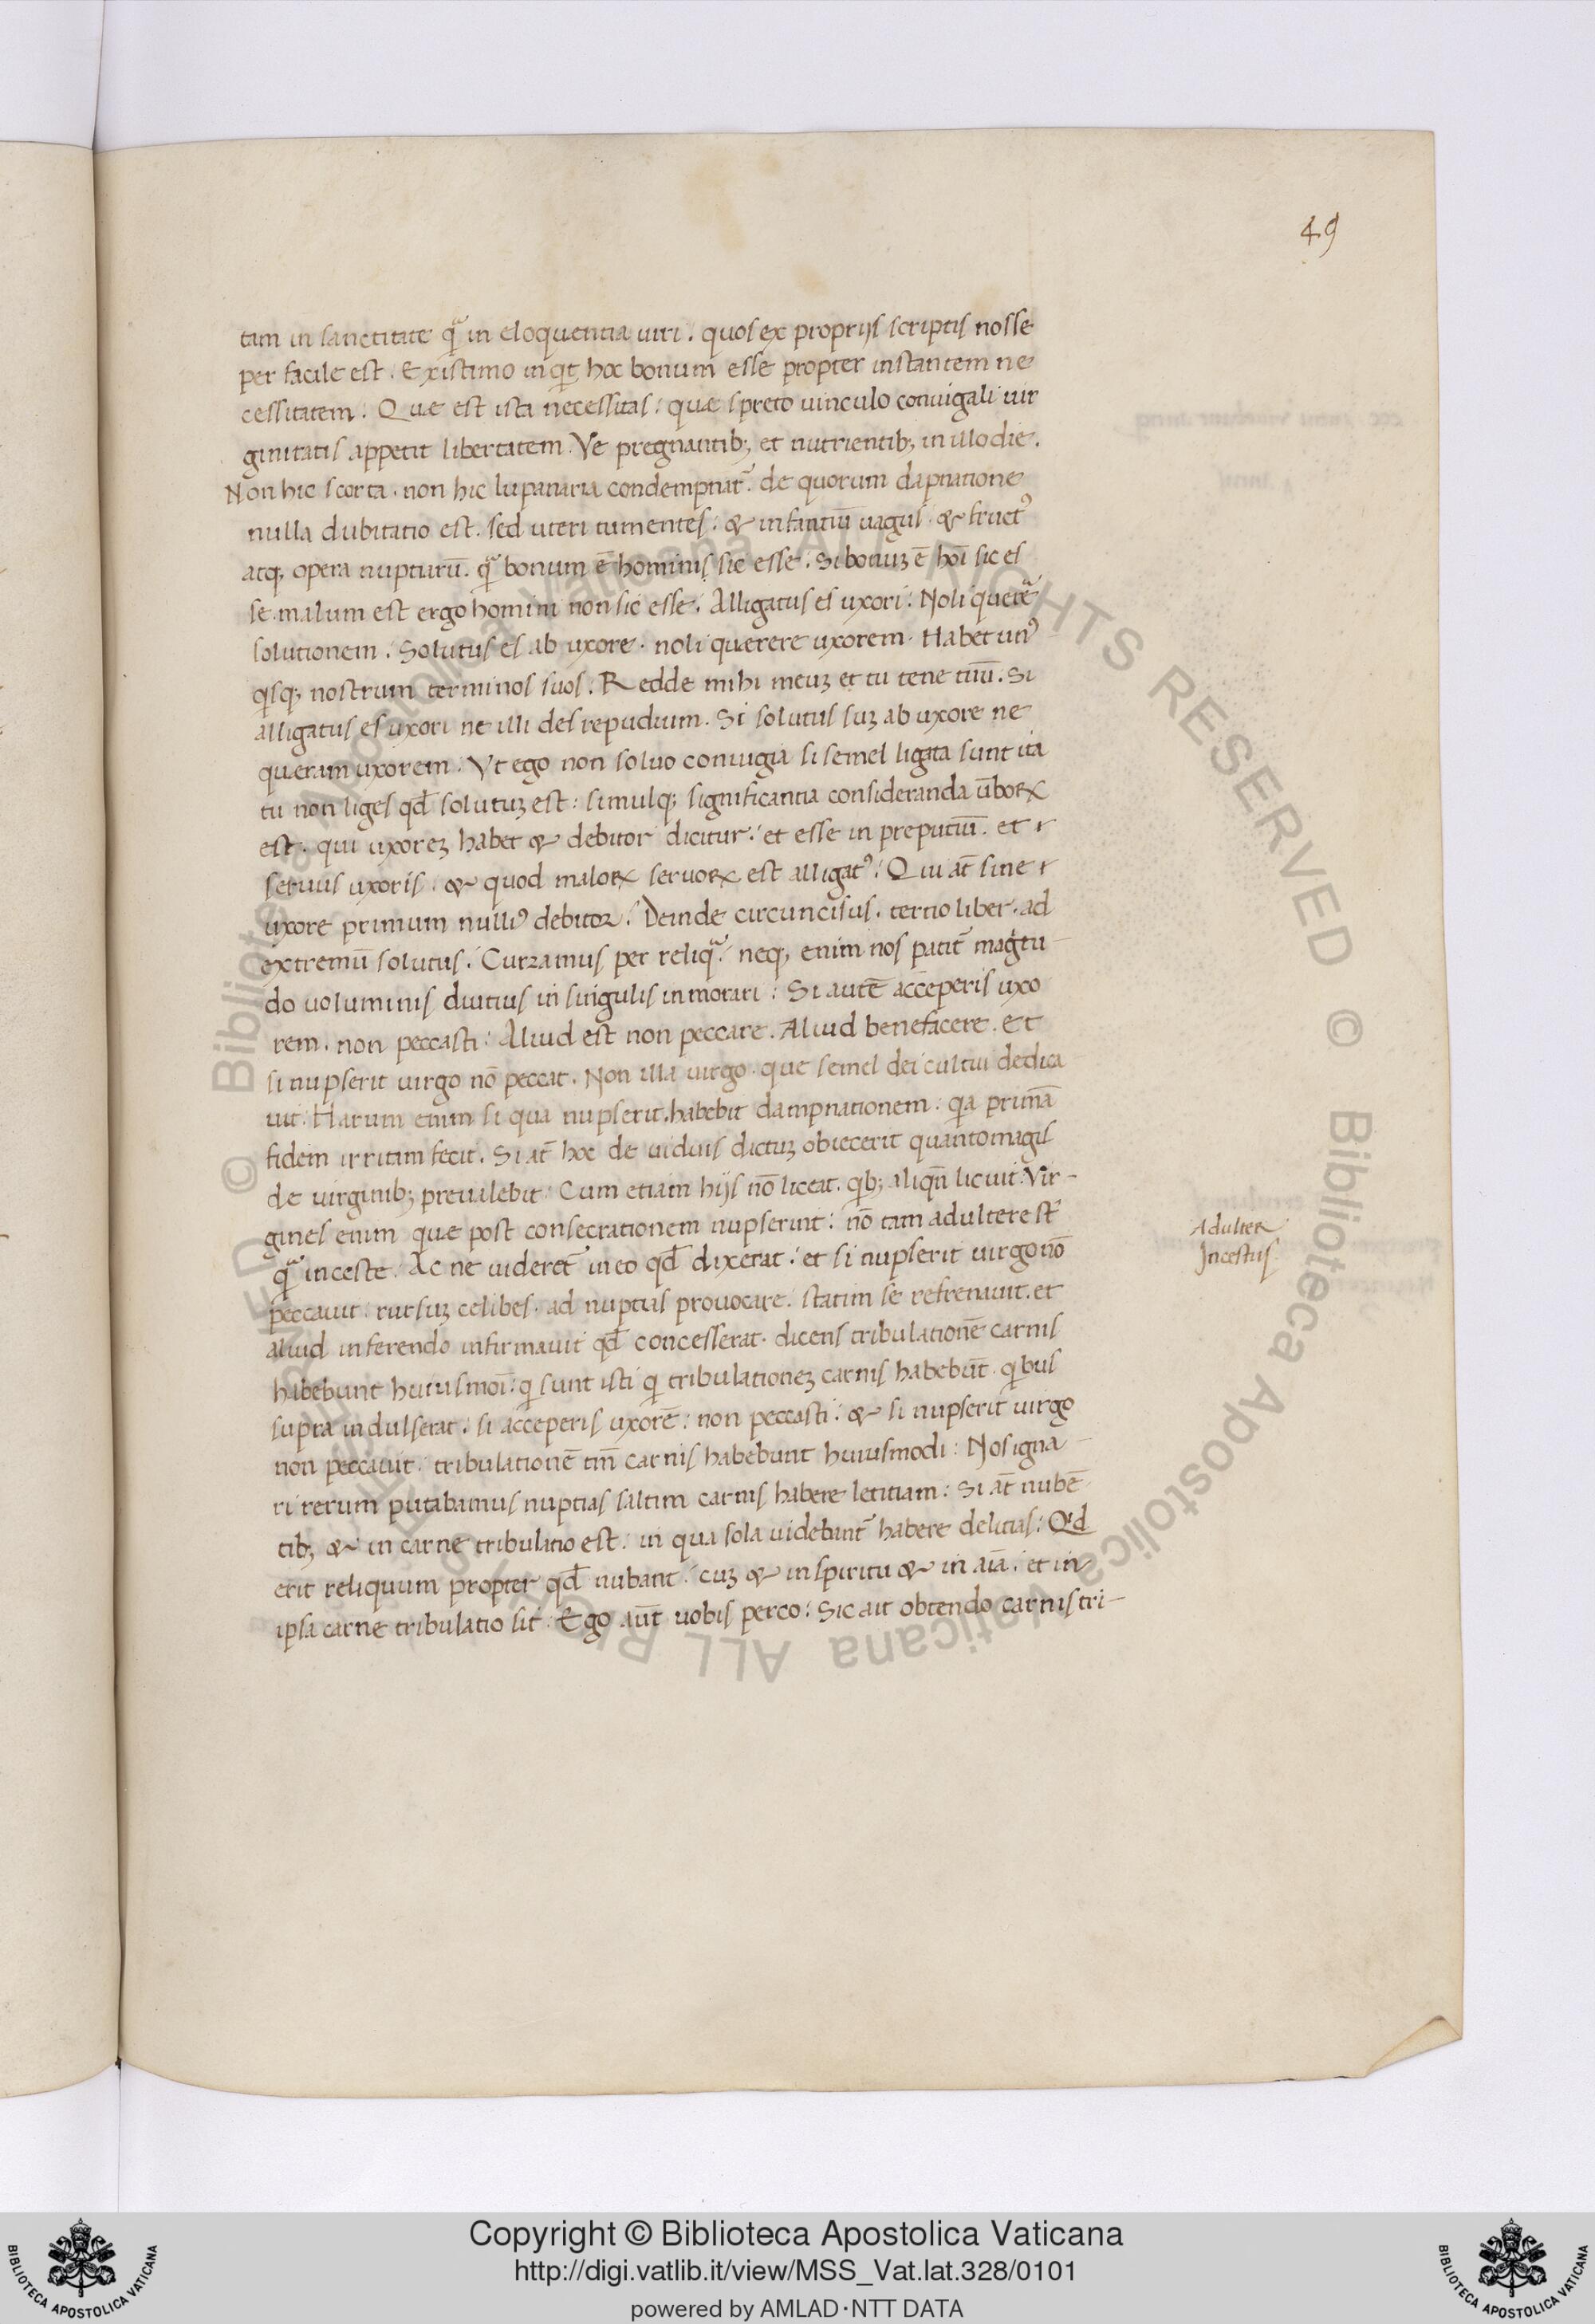 49
tim in sanctitate qᷓ in eloquentia uiri. quos ex proprijs scriptis nosse
per facile est. Existimo inqͥt hoc bonum esse propter instantem ne
cessitatem. Quæ est ista necessitas: quæ spreto uinculo coniugali uir
ginitatis appetit libertatem. Ve pregnantib; et nutrientib; in illo die.
Non hic scorta. non hic lupanaria condempnat᷑. de quorum dapnatione
nulla dubitatio est. sed uteri tumentes: & infantiū uagus. & fruct᷒
atq; opera nupturū. qᷓ bonum ē hominis sic esse. Si bonuꝫ ē hoī sic es
se malum est ergo homini non sic esse. Alligatus es uxori: Noli querᷓe
solutionem. Solutus es ab uxore. noli quærere uxorem. Habet un᷒
qͥsq; nostrum terminos suos. Redde mihi meuꝫ et tu tene tuū. Si
alligatus es uxori ne illi des repudium. Si solutus suꝫ ab uxore ne
queram uxorem. Vt ego non soluo coniugia si semel ligata sunt ita
tu non liges qđ solutuꝫ est: simulq; significantia consideranda ūboꝝ
est. qui uxoreꝫ habet & debitor dicitur: et esse in preputiū. et r
seruus uxoris. & quod maloꝝ seruoꝝ est alligat᷒: Qui at̄ sine r
uxore primum nulli᷒ debitoꝛ. Deinde circuncisus. tertio liber. ad
extremū solutus. Curramus per reliqᷓ. neq; enim nos patit᷑ magͥtu-
do uoluminis diutius in singulis inmorari: Si autē acceperis uxo
rem. non peccasti: Aliud est non peccare. Aliud benefacere. Et
si nupserit uirgo nō peccat. Non illa uirgo. que semel dei cultui dedica
uit. Harum enim si qua nupserit. habebit dampnationem: qa primā
fidem irritam fecit. Si at̄ hoc de uiduis dictuꝫ obiecerit quanto magis
de uirginib; preualebit: Cum etiam hijs nō liceat. qͥb; aliqn̄ licuit. Vir-
gines enim quæ post consecrationem nupserint: nō tam adultere st̄
qᷓ inceste. Ac ne uideret᷑ in eo qđ dixerat: et si nupserit uirgo nō
peccauit: rursuꝫ celibes. ad nuptias prouocare. statim se refrenauit. et
aliud inferendo infirmauit qđ concesserat. dicens tribulationē carnis
habebunt huiusmoī: qͥ sunt isti qͥ tribulationeꝫ carnis habebūt. qͥbus
supra indulserat. si acceperis uxorē: non peccasti: & si nupserit uirgo
non peccauit. tribulationē tm̄ carnis habebunt huiusmodi: Nos igna-
ri rerum putabamus nuptias saltim carnis habere letitiam: Si at̄ nubē-
tib; & in carne tribulatio est: in qua sola uidebant᷑ habere delitias: Qͥd
erit reliquum propter qđ nubant: cuꝫ & in spiritu & in aīa. et in
ipsa carne tribulatio sit: Ego aūt uobis perco: Sic ait obtendo carnis tri-
Adulter
Incestus.
© Biblioteca Apostolica Vaticana ALL RIGHTS RESERVED
Copyright © Biblioteca Apostolica Vaticana
http://digi.vatlib.it/view/MSS_Vat.lat.328/0101
powered by AMLAD·NTT DATA
BIBLIOTECA APOSTOLICA VATICANA
BIBLIOTECA APOSTOLICA VATICANA